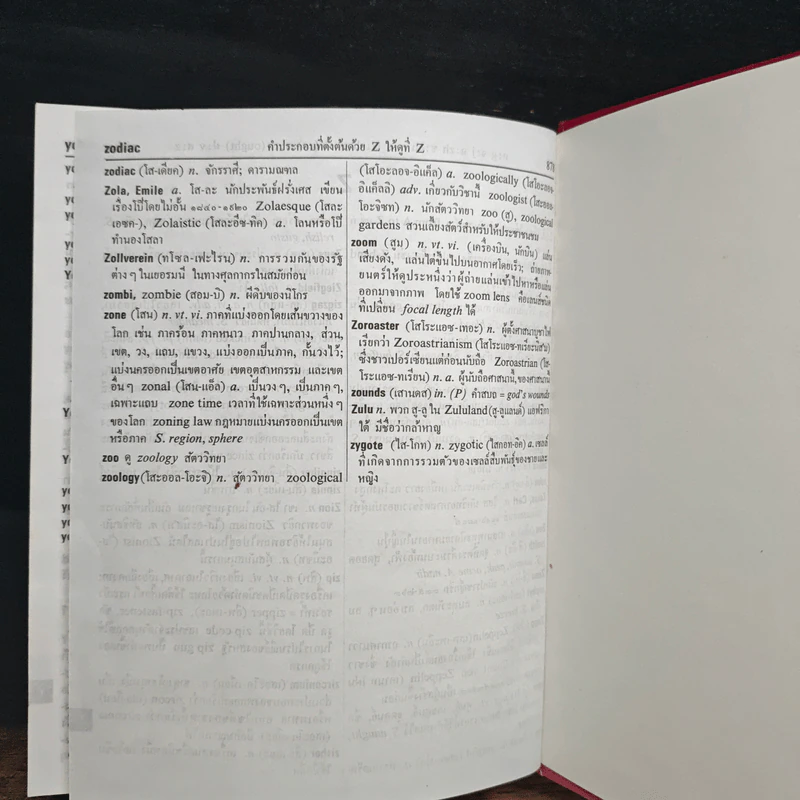 zodiac
คำประกอบที่ตั้งต้นด้วย Z ให้ดูที่ Z
zodiac (โส-เดียค) n. จักรราศี; ดารามณฑล
Zola, Emile a. โส-ละ นักประพันธ์ฝรั่งเศส เขียน
เรื่องโป๊โดยไม่อั้น ๑๘๔๐-๑๙๒๐ Zolaesque (โสละ
เอซค-), Zolaistic (โสละอีซ-ทิค) a. โลนหรือโป๊
ทำนองโสลา
Zollverein (ทโซล-เฟะไรน) n. การรวมกันของรัฐ
ต่างๆ ในเยอรมนี ในทางศุลกากรในสมัยก่อน
zombi, zombie (สอม-บิ) n. ผีดิบของนิโกร
zone (โสน) n. vt. vi. ภาคที่แบ่งออกโดยเส้นขวางของ
โลก เช่น ภาคร้อน ภาคหนาว ภาคปานกลาง, ส่วน,
เขต, วง, แถบ, แขวง, แบ่งออกเป็นภาค, กั้นวงไว้;
แบ่งนครออกเป็นเขตอาศัย เขตอุตสาหกรรม และเขต
อื่นๆ zonal (โสน-แอ็ล) a. เป็นวงๆ, เป็นภาคๆ,
เฉพาะแถบ zone time เวลาที่ใช้เฉพาะส่วนหนึ่งๆ
ของโลก zoning law กฎหมายแบ่งนครออกเป็นเขต
หรือภาค S. region, sphere
zoo ดู zoology สัตววิทยา
zoology (โสะออล-โอะจิ) n. สัตววิทยา zoological
(โสโอะลอจ-อิแค็ล) a. zoologically (โสโอะลอจ-
อิแค็ลลิ) adv. เกี่ยวกับวิชานี้ zoologist (โสะออล-
โอะจิซท) n. นักสัตววิทยา zoo (สู), zoological
gardens สวนเลี้ยงสัตว์สำหรับให้ประชาชนชม
zoom (สูม) n. vt. vi. (เครื่องบิน, นักบิน) แล่น
เสียงดัง, แล่นไต่ขึ้นไปบนอากาศโดยเร็ว; ถ่ายภาพ-
ยนตร์ให้ดูประหนึ่งว่าผู้ถ่ายแล่นเข้าไปหาหรือแล่น
ออกมาจากภาพ โดยใช้ zoom lens คือเลนส์ชนิด
ที่เปลี่ยน focal length ได้
Zoroaster (โสโระแอซ-เทอะ) n. ผู้ตั้งศาสนาบูชาไฟ
เรียกว่า Zoroastrianism (โสโระแอซ-ทเรียะนิส'ม)
ซึ่งชาวเปอร์เซียนแต่ก่อนนับถือ Zoroastrian (โส-
โระแอซ-ทเรียน) n. a. ผู้นับถือศาสนานี้, ของศาสนานี้
zounds (เสานดส) in. (P) คำสบถ = god's wounds
Zulu n. พวก สู-ลู ใน Zululand (สู-ลูแลนด์) แอฟริกา
ใต้ มีชื่อว่ากล้าหาญ
zygote (ไส-โกท) n. zygotic (ไสกอท-อิค) a. เซลล์
ที่เกิดจากการรวมตัวของเซลล์สืบพันธุ์ของชายและ
หญิง